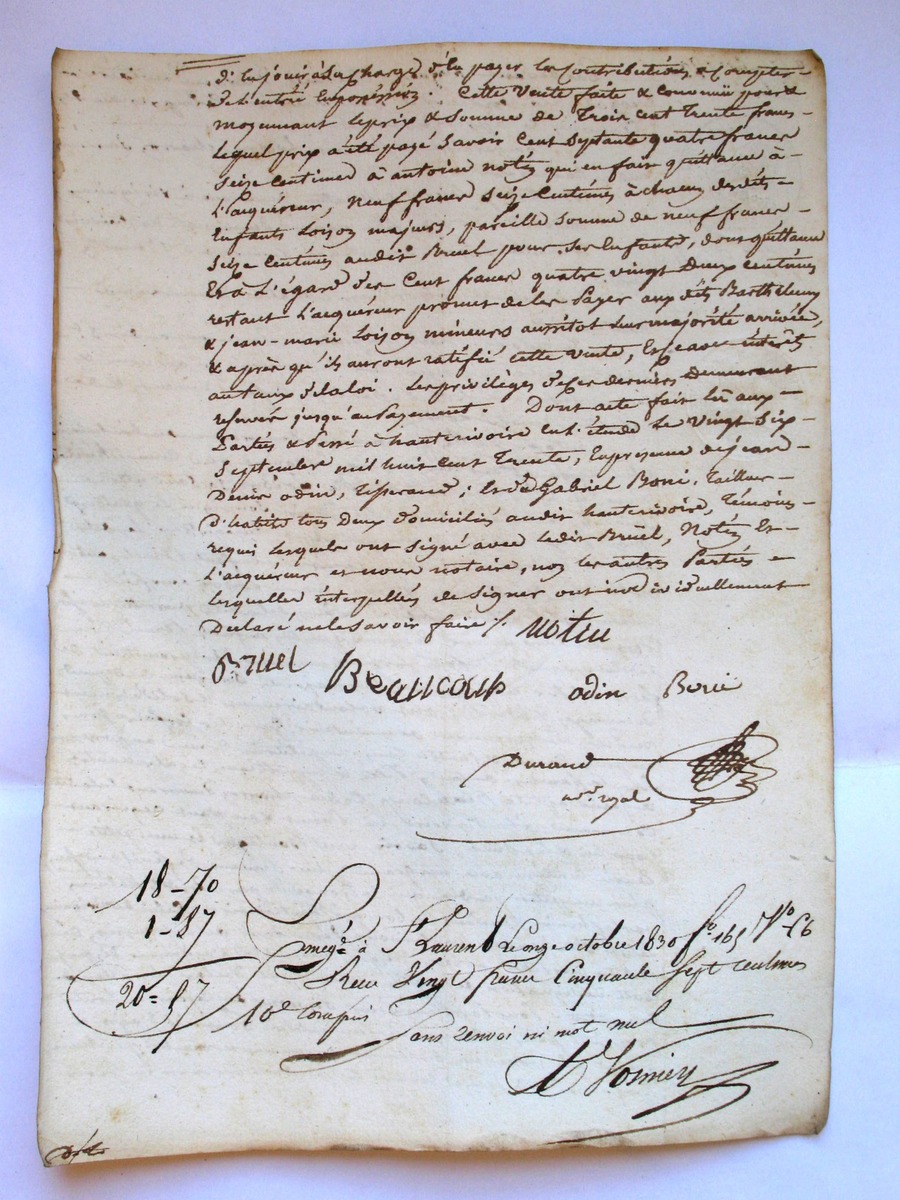 d'en jouir à la charge d'en payer les Contributions à Compter
de l'entrée en possession. Cette Vente faite & convenue pour &
moyennant le prix & somme de Trois cent Trente francs
lequel prix a été payé Savoir Cent Septante quatre francs
Seize Centimes à antoine notin qui en fait quittance à
L'acquéreur, Neuf francs Seize Centimes à chacun desdits
Enfants Loison majeurs, pareille Somme de neuf francs
Seize Centimes audit Bruel pour Ses Enfants, dont quittance
Et à L'égard des Cent francs quatre vingt Deux centimes
restant L'acquéreur promet de les Payer aux dits Barthélemy
& jean-marie Loison mineurs aussitôt leur majorité arrivée,
& après qu'ils auront ratifié cette vente, Et avec intérêts
au taux de la loi. Les privilèges de ces derniers Demeurant
réservés jusqu'au Payement. Dont acte fait lu aux
Parties & passé à hauterivoire en L'étude Le Vingt Six
Septembre mil huit cent Trente, En présence de jean
Denis odin, Tisserand; Et de Gabriel Boni, Tailleur
D'habits tous Deux Domiciliés audit hauterivoire, Témoins
requis lesquels ont signé avec ledit Bruel, Notin Et
L'acquéreur et nous notaire, non les autres Parties
lesquelles interpellées de signer ont individuellement
Déclaré ne le Savoir faire /. notin
Bruel Beaucoup odin Boni
Durand
nre. royal
18-70
1-87
20=57
Enregé. à St Laurent Le onze octobre 1830 fo. 165 Vo. C6
Reçu Vingt francs Cinquante Sept centimes
10e Compris
Sans renvoi ni mot nul